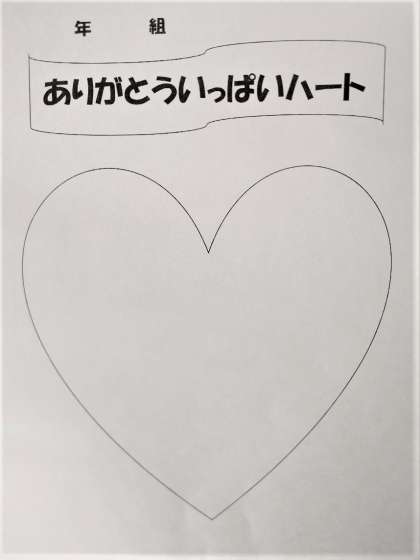 年 組
ありがとういっぱいハート